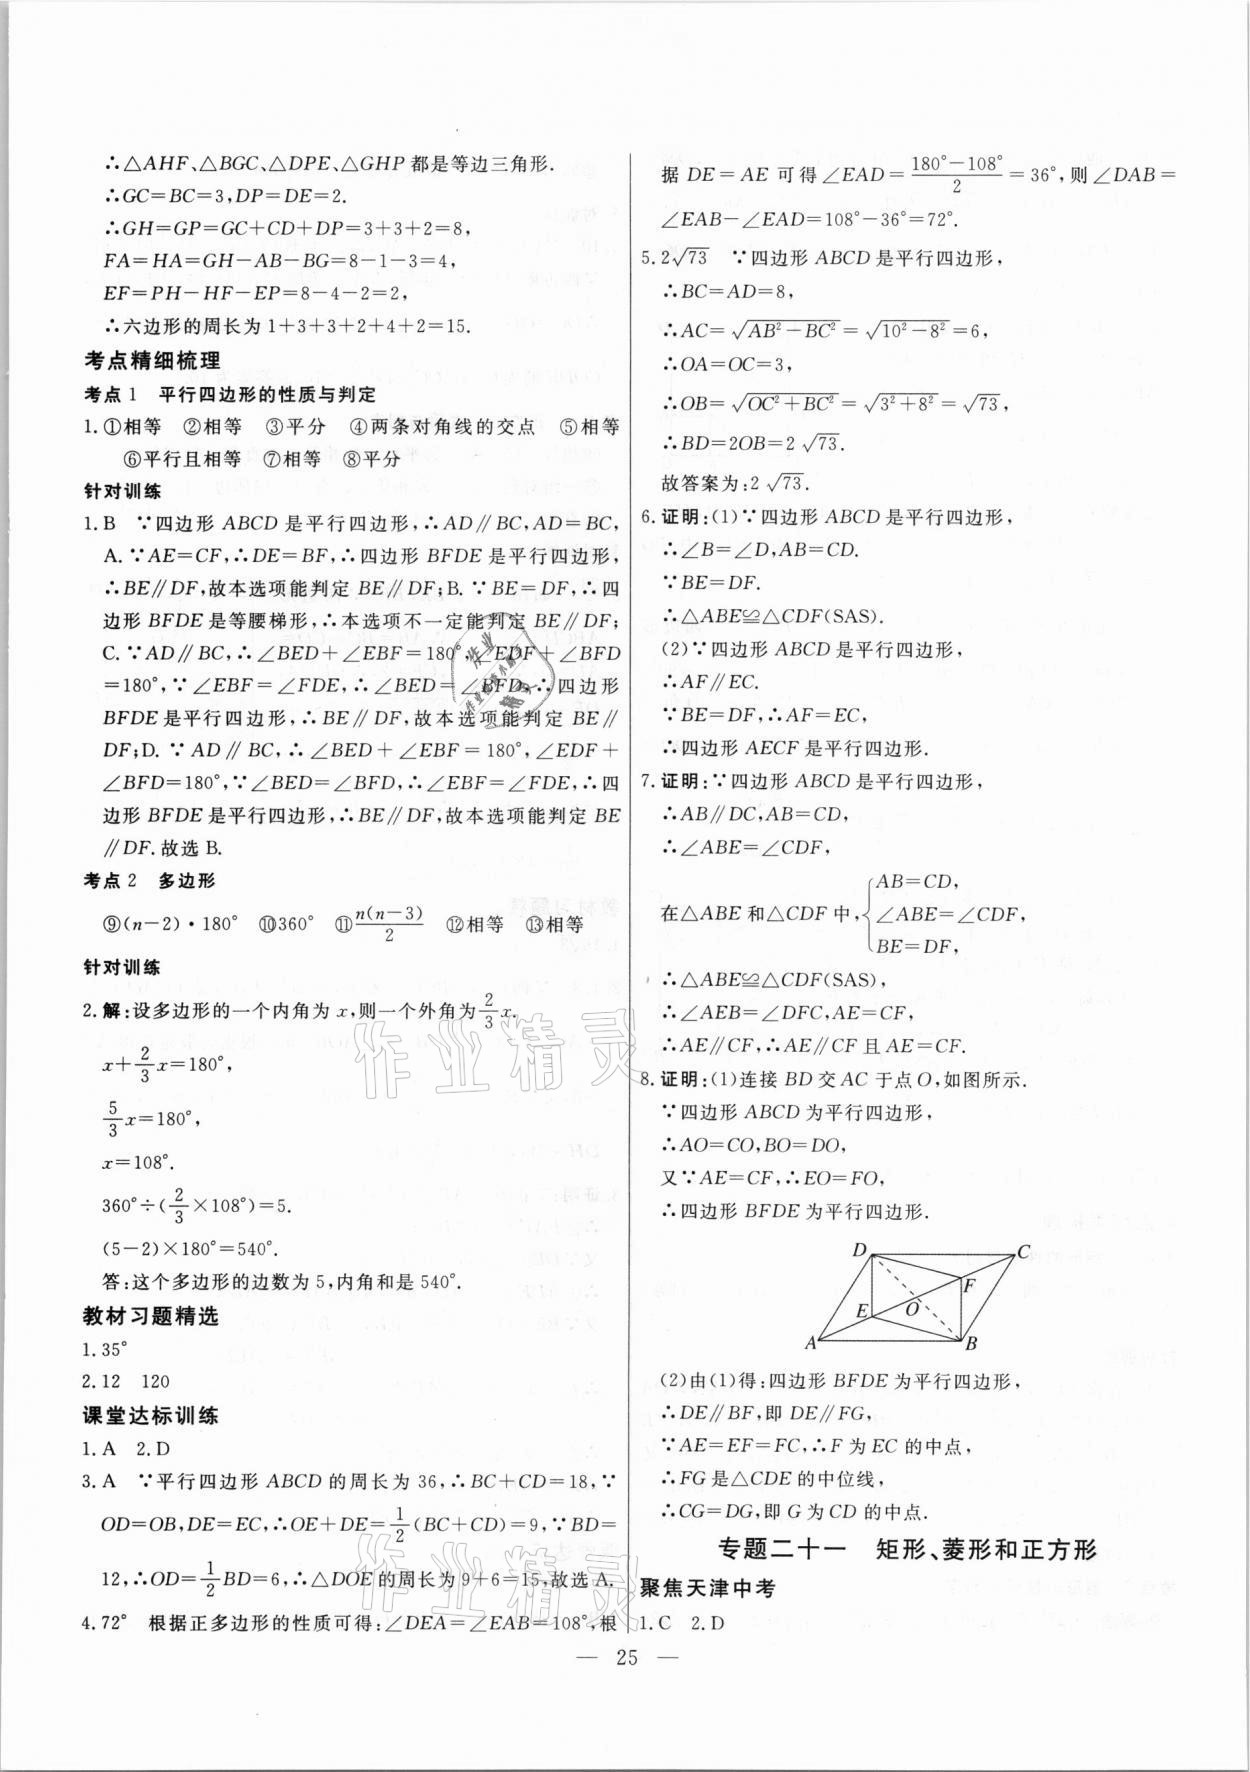 ∴△AHF、△BGC、△DPE、△GHP都是等边三角形.
∴GC=BC=3,DP=DE=2.
∴GH=GP=GC+CD+DP=3+3+2=8,
FA=HA=GH-AB-BG=8-1-3=4,
EF=PH-HF-EP=8-4-2=2,
∴六边形的周长为1+3+3+2+4+2=15.
考点精细梳理
考点1 平行四边形的性质与判定
1.①相等 ②相等 ③平分 ④两条对角线的交点 ⑤相等
⑥平行且相等 ⑦相等 ⑧平分
针对训练
1.B ∵四边形ABCD是平行四边形,∴AD∥BC,AD=BC,
A.∵AE=CF,∴DE=BF,∴四边形BFDE是平行四边形,
∴BE∥DF,故本选项能判定BE∥DF;B.∵BE=DF,∴四
边形BFDE是等腰梯形,∴本选项不一定能判定BE∥DF;
C.∵AD∥BC,∴∠BED+∠EBF=180°,∠EDF+∠BFD
=180°,∵∠EBF=∠FDE,∴∠BED=∠BFD,∴四边形
BFDE是平行四边形,∴BE∥DF,故本选项能判定BE∥
DF;D.∵AD∥BC,∴∠BED+∠EBF=180°,∠EDF+
∠BFD=180°,∵∠BED=∠BFD,∴∠EBF=∠FDE,∴四
边形BFDE是平行四边形,∴BE∥DF,故本选项能判定BE
∥DF.故选B.
考点2 多边形
⑨(n-2)·180° ⑩360° ⑪n(n-3)/2 ⑫相等 ⑬相等
针对训练
2.解:设多边形的一个内角为x,则一个外角为2/3x.
x+2/3x=180°,
5/3x=180°,
x=108°.
360°÷(2/3×108°)=5.
(5-2)×180°=540°.
答:这个多边形的边数为5,内角和是540°.
教材习题精选
1.35°
2.12 120
课堂达标训练
1.A 2.D
3.A ∵平行四边形ABCD的周长为36,∴BC+CD=18,∵
OD=OB,DE=EC,∴OE+DE=1/2(BC+CD)=9,∵BD=
12,∴OD=1/2BD=6,∴△DOE的周长为9+6=15,故选A.
4.72° 根据正多边形的性质可得:∠DEA=∠EAB=108°,根
据DE=AE可得∠EAD=(180°-108°)/2=36°,则∠DAB=
∠EAB-∠EAD=108°-36°=72°.
5.2√73 ∵四边形ABCD是平行四边形,
∴BC=AD=8,
∴AC=√(AB²-BC²)=√(10²-8²)=6,
∴OA=OC=3,
∴OB=√(OC²+BC²)=√(3²+8²)=√73,
∴BD=2OB=2√73.
故答案为:2√73.
6.证明:(1)∵四边形ABCD是平行四边形,
∴∠B=∠D,AB=CD.
∵BE=DF.
∴△ABE≌△CDF(SAS).
(2)∵四边形ABCD是平行四边形,
∴AF∥EC.
∵BE=DF,∴AF=EC,
∴四边形AECF是平行四边形.
7.证明:∵四边形ABCD是平行四边形,
∴AB∥DC,AB=CD,
∴∠ABE=∠CDF,
AB=CD,
在△ABE和△CDF中,{∠ABE=∠CDF,
BE=DF,
∴△ABE≌△CDF(SAS).
∴∠AEB=∠DFC,AE=CF,
∴AE∥CF,∴AE∥CF且AE=CF.
8.证明:(1)连接BD交AC于点O,如图所示.
∵四边形ABCD为平行四边形,
∴AO=CO,BO=DO,
又∵AE=CF,∴EO=FO,
∴四边形BFDE为平行四边形.
D C
F
E O
A B
(2)由(1)得:四边形BFDE为平行四边形,
∴DE∥BF,即DE∥FG,
∵AE=EF=FC,∴F为EC的中点,
∴FG是△CDE的中位线,
∴CG=DG,即G为CD的中点.
专题二十一 矩形、菱形和正方形
聚焦天津中考
1.C 2.D
— 25 —
作业精灵
作业精灵